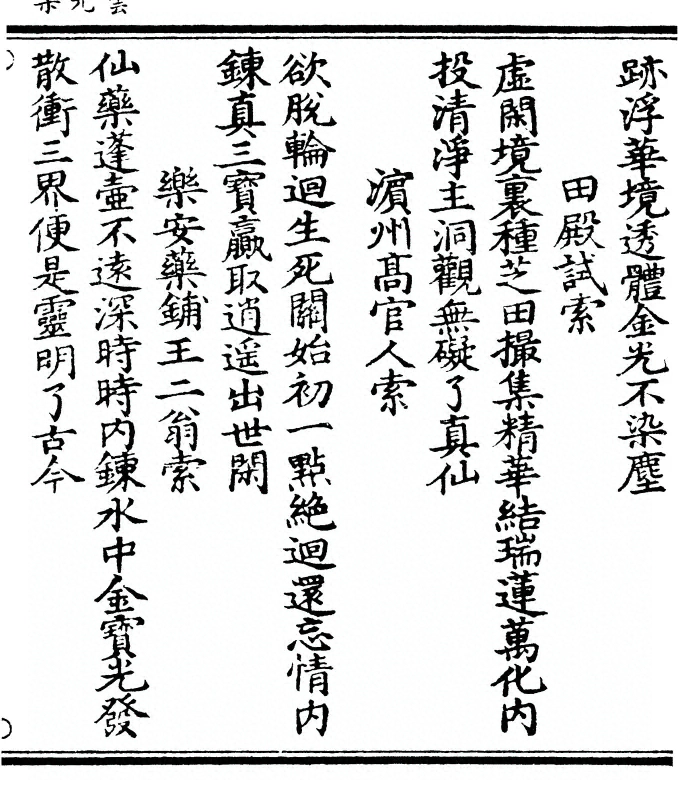 跡浮華境透體金光不染塵
田殿試索
虛閑境裏種芝田撮集精華結瑞蓮萬化内
投清淨主洞觀無礙了真仙
濵州髙官人索
欲脫輪迴生死關始初一㸃絶迴還忘情内
鍊真三寶贏取逍遥出世閑
樂安藥鋪王二翁索
仙藥蓬壺不遠深時時内鍊水中金寶光發
散衝三界便是靈明了古今